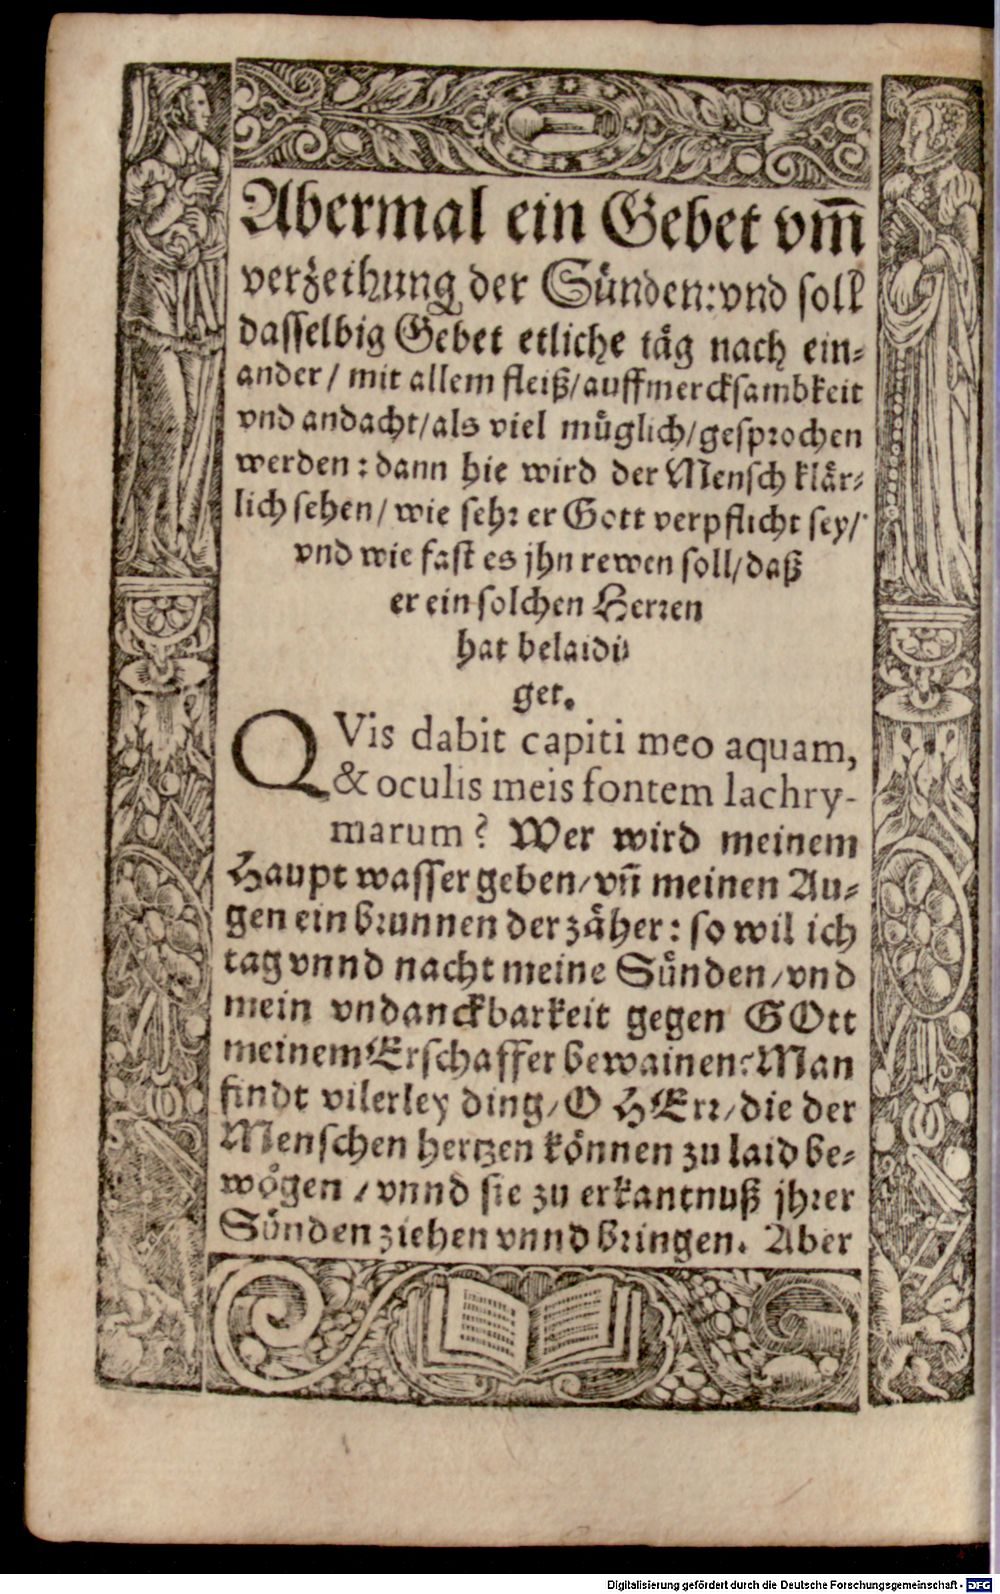 Abermal ein Gebet vm̄
verzeihung der Sünden: vnd soll
dasselbig Gebet etliche täg nach ein-
ander / mit allem fleiß / auffmercksambkeit
vnd andacht / als viel müglich / gesprochen
werden : dann hie wird der Mensch klär-
lich sehen / wie sehr er Gott verpflicht sey /
vnd wie fast es jhn rewen soll / daß
er ein solchen Herren
hat belaidi-
get.
QVis dabit capiti meo aquam,
& oculis meis fontem lachry-
marum? Wer wird meinem
Haupt wasser geben / vn̄ meinen Au-
gen ein brunnen der zäher : so wil ich
tag vnnd nacht meine Sünden / vnd
mein vndanckbarkeit gegen GOtt
meinem Erschaffer bewainen: Man
findt vilerley ding / O HErr / die der
Menschen hertzen können zu laid be-
wögen / vnnd sie zu erkantnuß jhrer
Sünden ziehen vnnd bringen. Aber
Digitalisierung gefördert durch die Deutsche Forschungsgemeinschaft - DFG